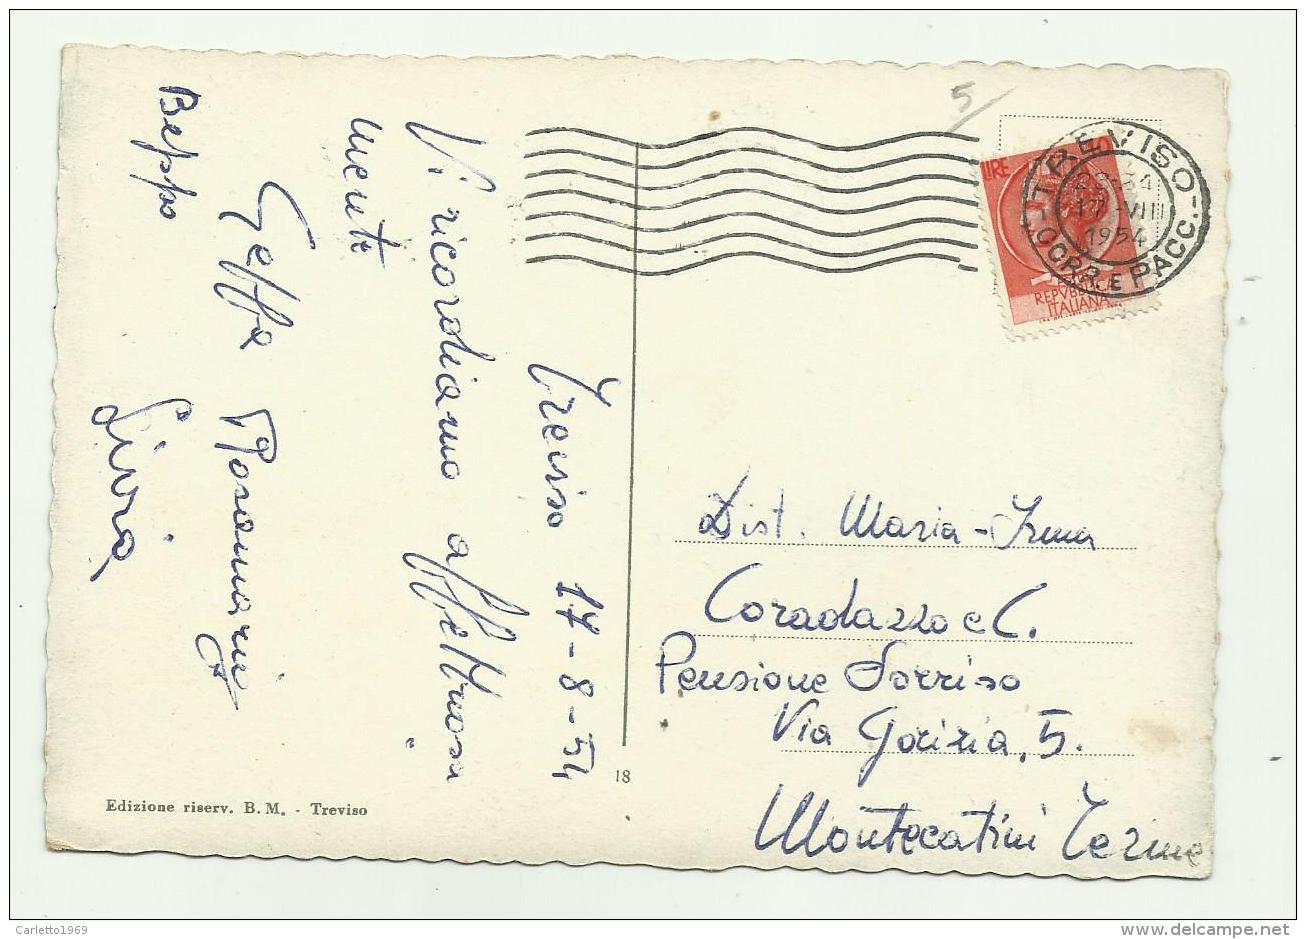 Treviso 17-8-54
Vi ricordiamo affettuosa
mente
Rosamaria
Beppo Livia
Edizione riserv. B. M. - Treviso
18
5
TREVISO
CORR. E PACC.
17 VIII
1954
LIRE
REPVBBLICA
ITALIANA
Dist. Maria-Irma
Coradazzo e C.
Pensione Sorriso
Via Gorizia, 5.
Montecatini Terme
Carletto1969
delcampe.net